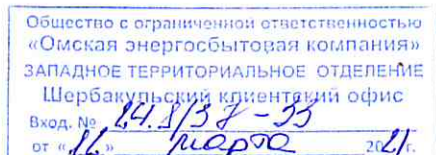 Общество с ограниченной ответственностью
«Омская энергосбытовая компания»
ЗАПАДНОЕ ТЕРРИТОРИАЛЬНОЕ ОТДЕЛЕНИЕ
Шербакульский клиентский офис
Вход. №
от « » марта 2021 г.